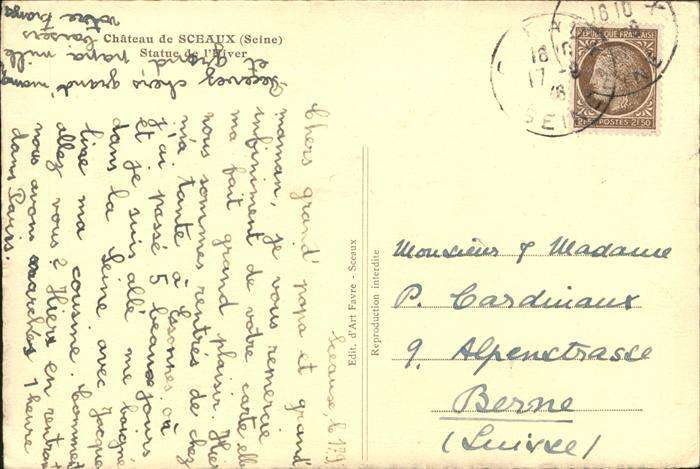 Château de SCEAUX (Seine)
Statue de l'Hiver
Sceaux le 17.9
Chers grand' papa et grand'
maman, je vous remercie
infiniment de votre carte elle
m'a fait grand plaisir. Hier
nous sommes rentrés de chez
ma tante à Essonnes où
j'ai passé 5 beaux jours
et je suis allé me baigné
dans la Seine avec Jacque
line ma cousine. Comment
allez vous? Hier en rentrant
nous avons marchés 1 heure
dans Paris.
Recevez chers grand' maman
et grand' papa mille
baisers
votre
Edit. d'Art Favre - Sceaux
Reproduction interdite
REPUBLIQUE FRANÇAISE
POSTES 2F50
18 10
17 - 9
SEINE
Monsieur & Madame
P. Cardinaux
9, Alpenstrasse
Berne
(Suisse)